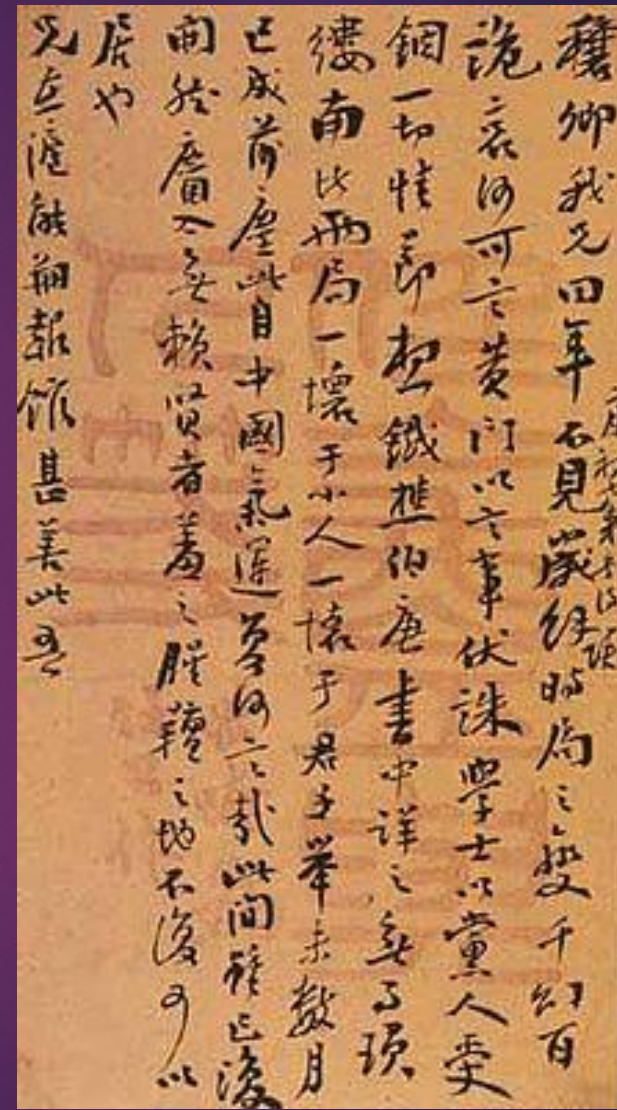 穰卿我兄四年不見歲經時局之變千幻百
詭哀何可言黃門以言事伏誅學士以黨人受
錮一切情節想鐵樵伯唐書中詳之無事瑣
縷南北兩局一壞于小人一壞于君子舉未數月
已成前塵此自中國氣運何言哉此間雖已復
開然麕入無賴賢者羞之腥羶之地不復可以
居也
兄在滬能朔報館甚善此吾